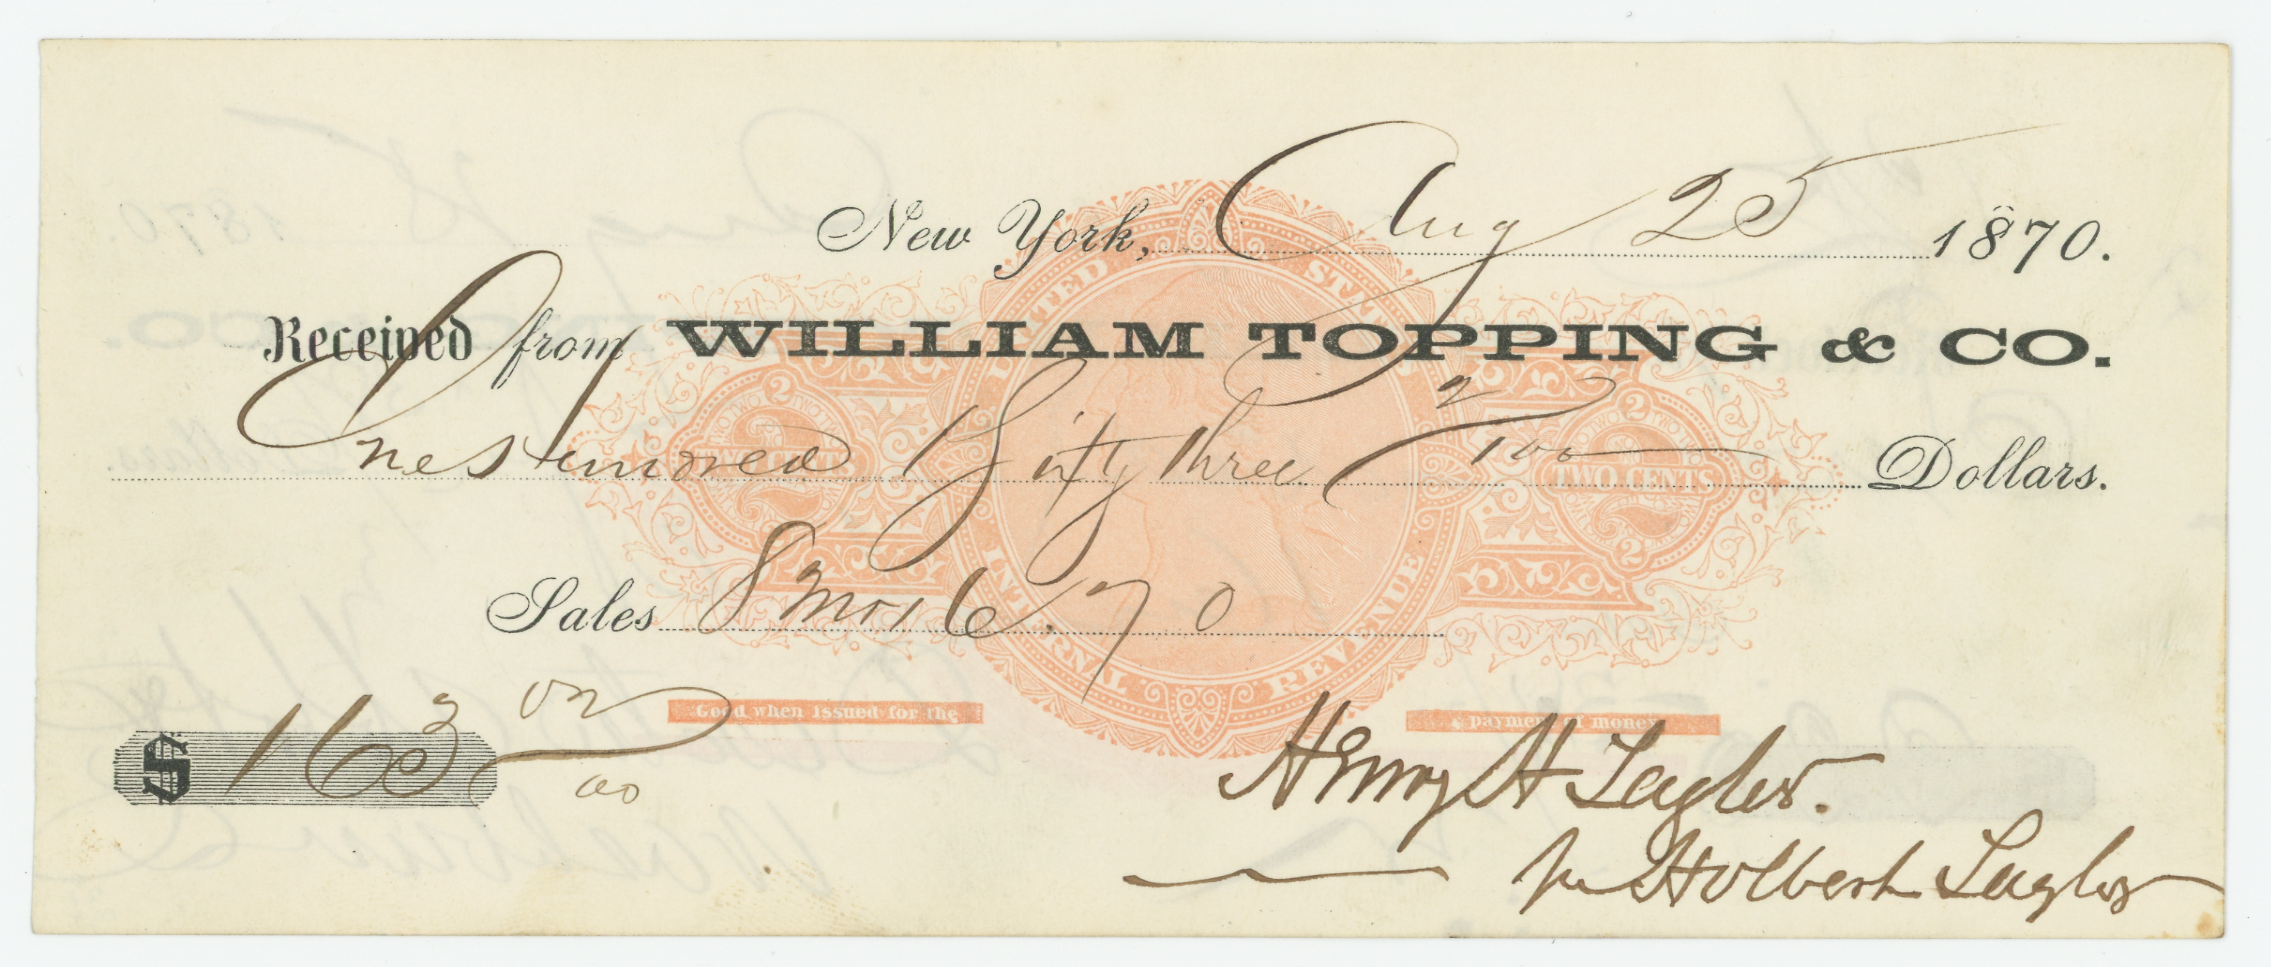 New York, Aug 25 1870.
Received from WILLIAM TOPPING & CO.
One Hundred Sixty three 2/100 Dollars.
Sales 8 mo 16. 70
$ 163 02/00
UNITED STATES
INTERNAL REVENUE
TWO CENTS
2
Good when issued for the
payment of money
Henry H Taylor.
pr Holbert Taylor